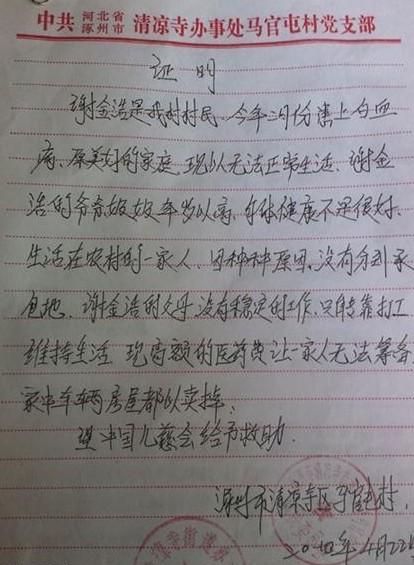 中共 河北省涿州市 清凉寺办事处马官屯村党支部
证明
谢金浩是我村村民、今年二月份患上白血
病、原美好的家庭、现以无法正常生活、谢金
浩的爷爷奶奶年岁以高、身体健康不是很好、
生活在农村的一家人、因种种原因、没有分到承
包地、谢金浩的父母没有稳定的工作、只能靠打工
维持生活、现高额的医药费让一家人无法筹备
家中车辆房屋都以卖掉、
望中国儿慈会给予救助.
涿州市清凉寺区马官屯村
年4月22日